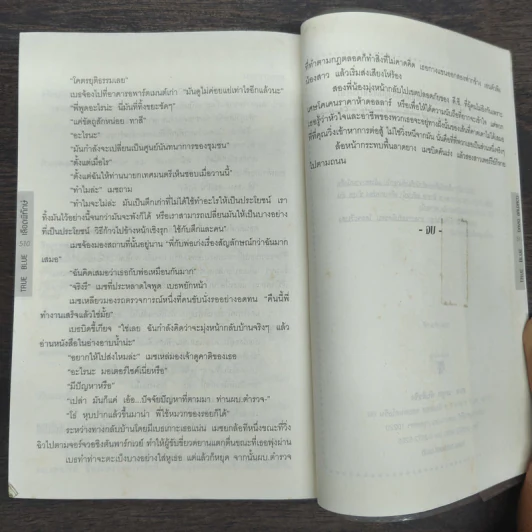 "โคตรยุติธรรมเลย"
เบธจ้องไปที่อาคารอพาร์ตเมนต์เก่า "มันดูไม่ค่อยแย่เท่าไรอีกแล้วนะ"
"พี่พูดอะไรน่ะ นี่มันที่ทิ้งขยะชัดๆ"
"แค่ขัดถูสักหน่อย ทาสี"
"อะไรนะ"
"มันกำลังจะเปลี่ยนเป็นศูนย์นันทนาการของชุมชน"
"ตั้งแต่เมื่อไร"
"ตั้งแต่ฉันให้ท่านนายกเทศมนตรีเห็นชอบเมื่อวานนี้"
"ทำไมล่ะ" เมซถาม
"ทำไมจะไม่ล่ะ มันเป็นตึกเก่าที่ไม่ได้ใช้ทำอะไรให้เป็นประโยชน์ เรา
ทิ้งมันไว้อย่างนี้จนกว่ามันจะพังก็ได้ หรือเราสามารถเปลี่ยนมันให้เป็นบางอย่าง
ที่เป็นประโยชน์ กู้วิธีก้าวไปข้างหน้าเชิงรุก ใช้กับตึกและคน"
เมซจ้องมองสถานที่นั้นอยู่นาน "พี่กับพ่อเก่งเรื่องสัญลักษณ์กว่าฉันมาก
เสมอ"
"ฉันคิดเสมอว่าเธอกับพ่อเหมือนกันมาก"
"จริงรึ" เมซที่ประหลาดใจพูด เบธพยักหน้า
เมซเหลียวมองรถตรวจการณ์หนึ่งที่คนขับนั่งรออย่างอดทน "คืนนี้พี่
ทำงานเสร็จแล้วใช่มั้ย"
เบธบิดขี้เกียจ "ใช่เลย ฉันกำลังคิดว่าจะมุ่งหน้ากลับบ้านจริงๆ แล้ว
อ่านหนังสือในอ่างอาบน้ำน่ะ"
"อยากให้ไปส่งไหมล่ะ" เมซเหล่มองเจ้าดูคาติของเธอ
"อะไรนะ มอเตอร์ไซค์เนี่ยหรือ"
"มีปัญหาหรือ"
"เปล่า มันก็แค่ เอ้อ...ปัจจัยปัญหาที่ตามมา. ท่านผบ.ตำรวจ-"
"โธ่ หุบปากแล้วขึ้นมาน่า พี่ใช้หมวกของรอยก็ได้"
ระหว่างทางกลับบ้านโดยมีเบธเกาะเธอแน่น เมซยกล้อทีหนึ่งขณะที่วิ่ง
ฉิวไปตามจอร์จวอชิงตันพาร์กเวย์ ทำให้ผู้ขับขี่ยวดยานแตกตื่นขณะที่เธอพุ่งผ่าน
เบธทำท่าจะตะเบ็งบางอย่างใส่หูเธอ แต่แล้วก็หยุด จากนั้นผบ.ตำรวจ
TRUE BLUE
ที่ทำตามกฎตลอดก็ทำสิ่งที่ไม่คาดคิด
น้องสาว แล้วเริ่มส่งเสียงโห่ร้อง
ล้อหน้ากระทบพื้นลาดยาง
ไปตามถนน
- จบ -